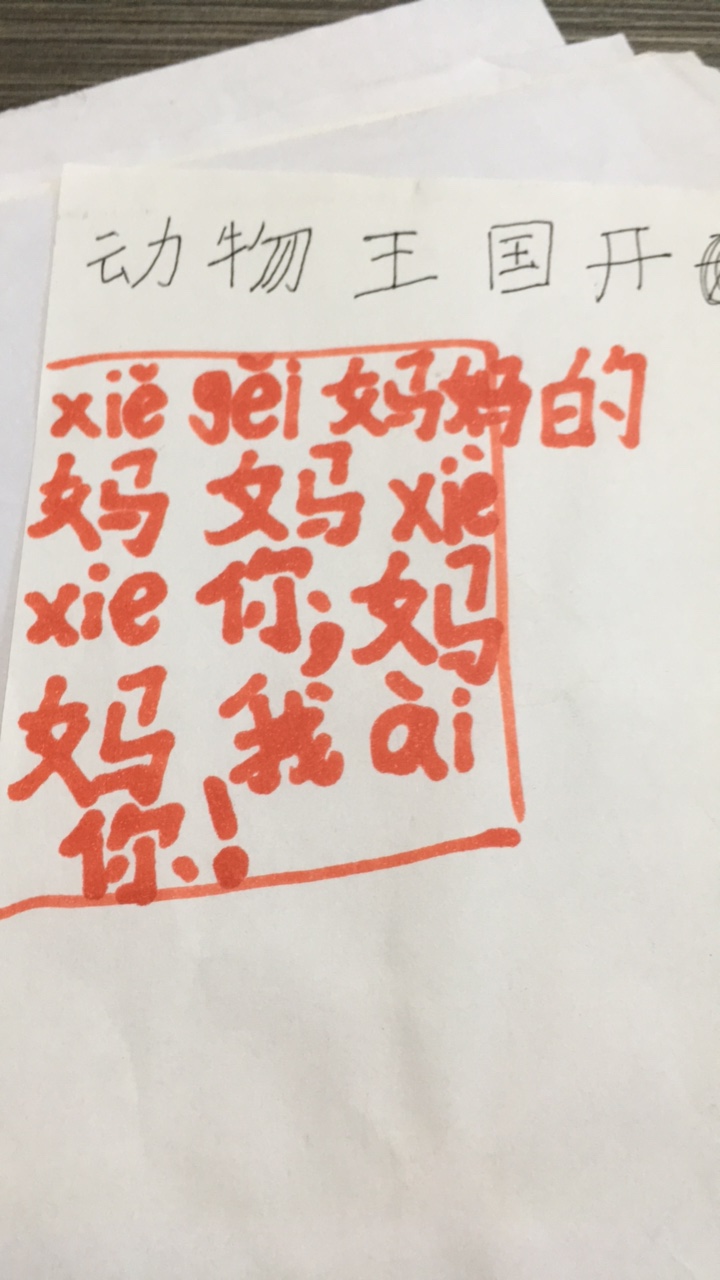 动物王国开
xiě gěi 妈妈的
妈妈 xiè
xie 你,妈
妈我 ài
你!